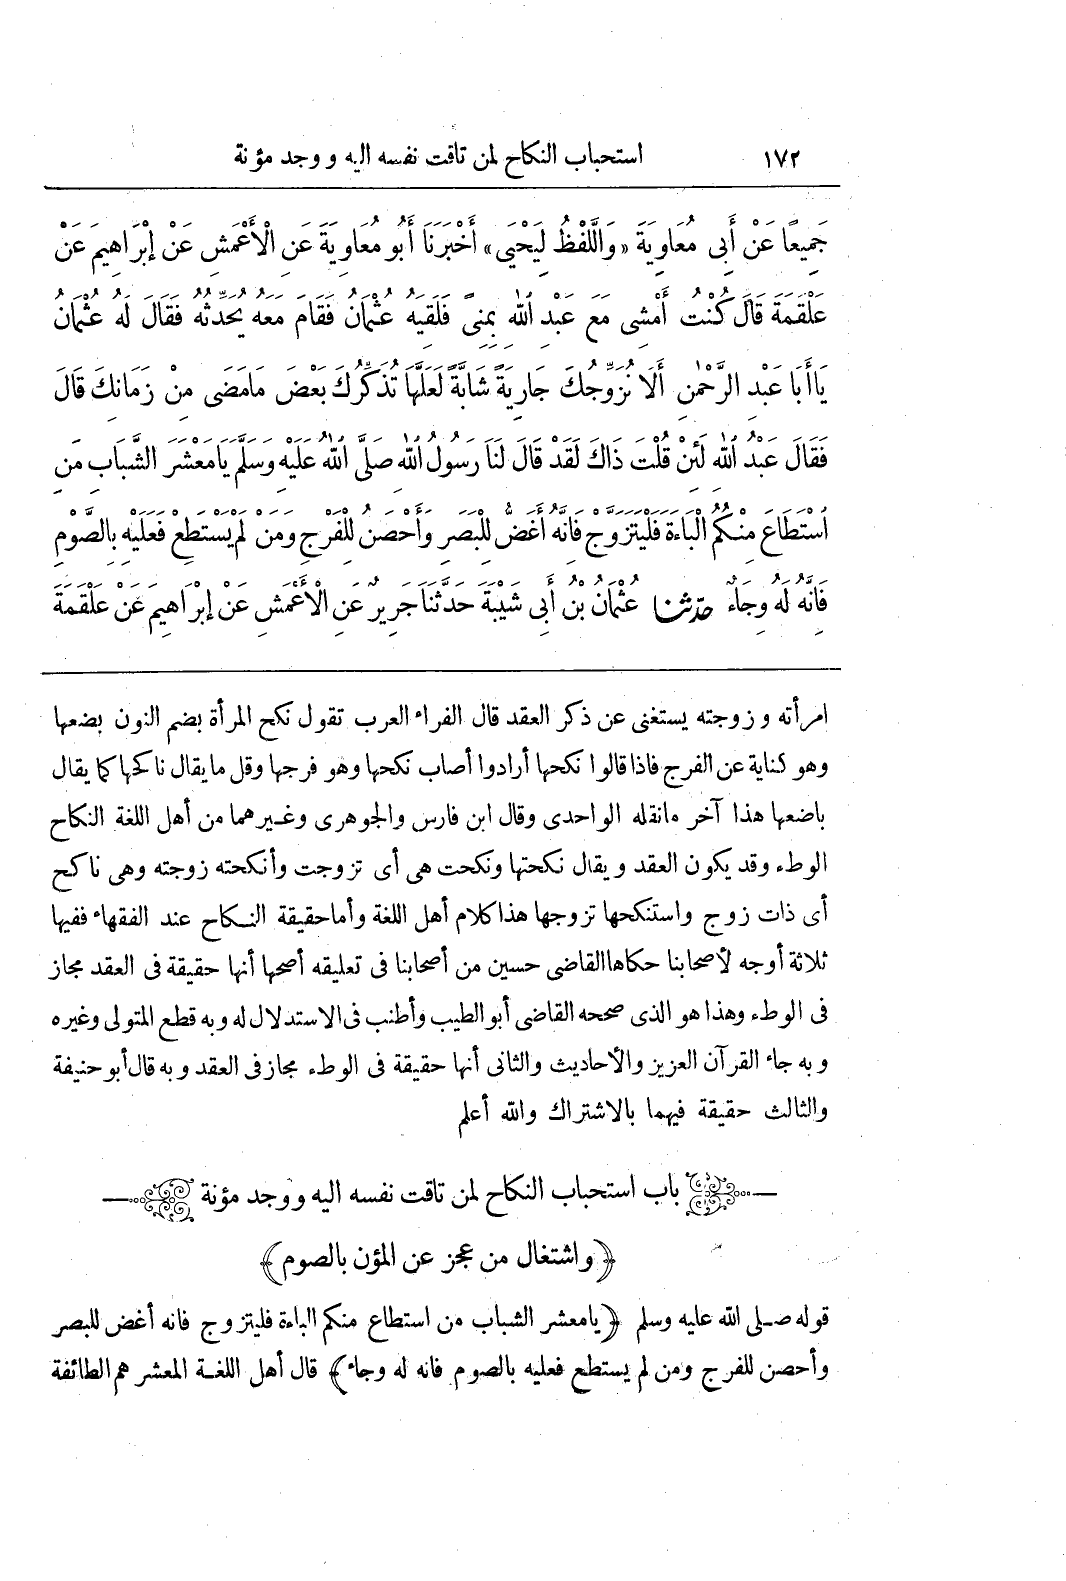 ١٧٢ استحباب النكاح لمن تاقت نفسه اليه ووجد مؤنة
جَمِيعًا عَنْ أَبِى مُعَاوِيَةَ «وَاللَّفْظُ لِيَحْيَى» أَخْبَرَنَا أَبُو مُعَاوِيَةَ عَنِ الْأَعْمَشِ عَنْ إِبْرَاهِيمَ عَنْ
عَلْقَمَةَ قَالَ كُنْتُ أَمْشِى مَعَ عَبْدِ اللهِ بِمِنًى فَلَقِيَهُ عُثْمَانُ فَقَامَ مَعَهُ يُحَدِّثُهُ فَقَالَ لَهُ عُثْمَانُ
يَا أَبَا عَبْدِ الرَّحْمٰنِ أَلَا نُزَوِّجُكَ جَارِيَةً شَابَّةً لَعَلَّهَا تُذَكِّرُكَ بَعْضَ مَامَضَى مِنْ زَمَانِكَ قَالَ
فَقَالَ عَبْدُ اللهِ لَئِنْ قُلْتَ ذَاكَ لَقَدْ قَالَ لَنَا رَسُولُ اللهِ صَلَّى اللهُ عَلَيْهِ وَسَلَّمَ يَامَعْشَرَ الشَّبَابِ مَنِ
اسْتَطَاعَ مِنْكُمُ الْبَاءَةَ فَلْيَتَزَوَّجْ فَانَّهُ أَغَضُّ لِلْبَصَرِ وَأَحْصَنُ لِلْفَرْجِ وَمَنْ لَمْ يَسْتَطِعْ فَعَلَيْهِ بِالصَّوْمِ
فَانَّهُ لَهُ وِجَاءٌ حدّثنا عُثْمَانُ بْنُ أَبِى شَيْبَةَ حَدَّثَنَا جَرِيرٌ عَنِ الْأَعْمَشِ عَنْ إِبْرَاهِيمَ عَنْ عَلْقَمَةَ
امرأته وزوجته يستغنى عن ذكر العقد قال الفراء العرب تقول نكح المرأة بضم النون بضعها
وهو كناية عن الفرج فاذا قالوا نكحها أرادوا أصاب نكحها وهو فرجها وقل ما يقال ناكحها كما يقال
باضعها هذا آخر مانقله الواحدى وقال ابن فارس والجوهرى وغيرهما من أهل اللغة النكاح
الوطء وقد يكون العقد ويقال نكحتها ونكحت هى أى تزوجت وأنكحته زوجته وهى ناكح
أى ذات زوج واستنكحها تزوجها هذا كلام أهل اللغة وأما حقيقة النكاح عند الفقهاء ففيها
ثلاثة أوجه لأصحابنا حكاها القاضى حسين من أصحابنا فى تعليقه أصحها أنها حقيقة فى العقد مجاز
فى الوطء وهذا هو الذى صححه القاضى أبو الطيب وأطنب فى الاستدلال له وبه قطع المتولى وغيره
وبه جاء القرآن العزيز والأحاديث والثانى أنها حقيقة فى الوطء مجاز فى العقد وبه قال أبو حنيفة
والثالث حقيقة فيهما بالاشتراك والله أعلم
باب استحباب النكاح لمن تاقت نفسه اليه ووجد مؤنة
﴿واشتغال من عجز عن المؤن بالصوم﴾
قوله صلى الله عليه وسلم ﴿يامعشر الشباب من استطاع منكم الباءة فليتزوج فانه أغض للبصر
وأحصن للفرج ومن لم يستطع فعليه بالصوم فانه له وجاء﴾ قال أهل اللغة المعشر هم الطائفة